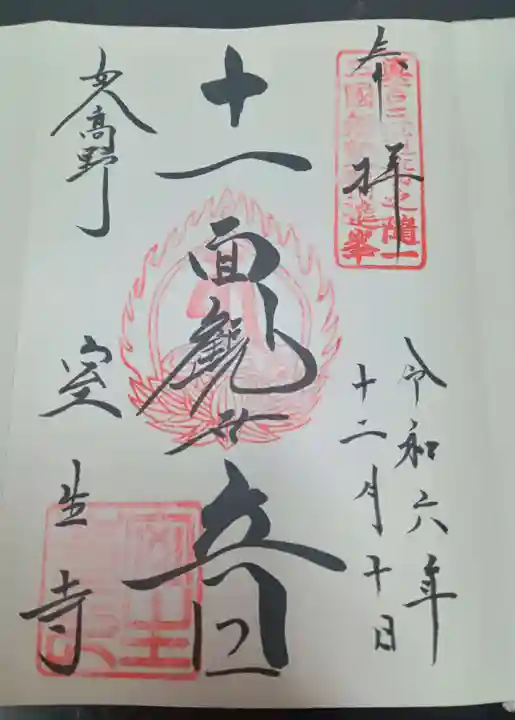 奉拝
令和六年
十二月十日
十一面觀世音
女人高野
室生寺